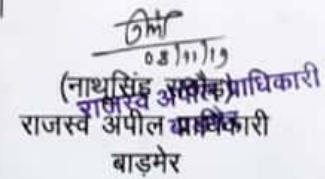 08/11/19
(नाथूसिंह राठौड़)
राजस्व अपील प्राधिकारी
राजस्व अपील प्राधिकारी
बाड़मेर